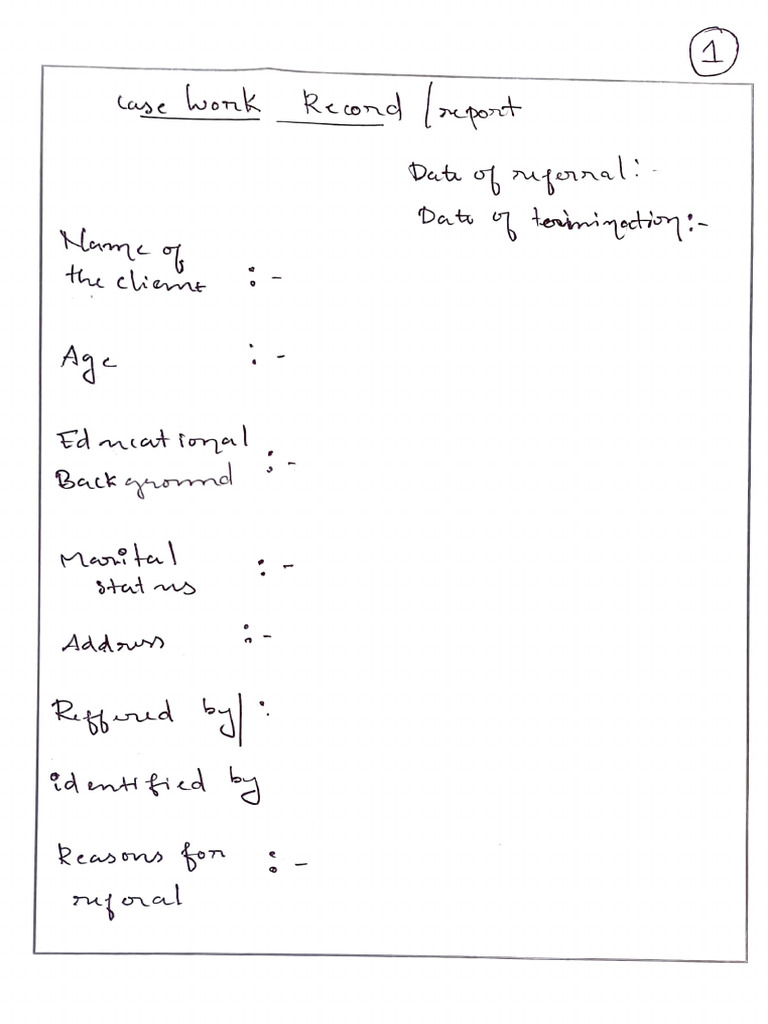 1
case Work Record / report
Date of referral :-
Date of termination :-
Name of
the client :-
Age :-
Educational
Background :-
Marital
status :-
Address :-
Reffered by/ :
identified by
Reasons for
referal :-